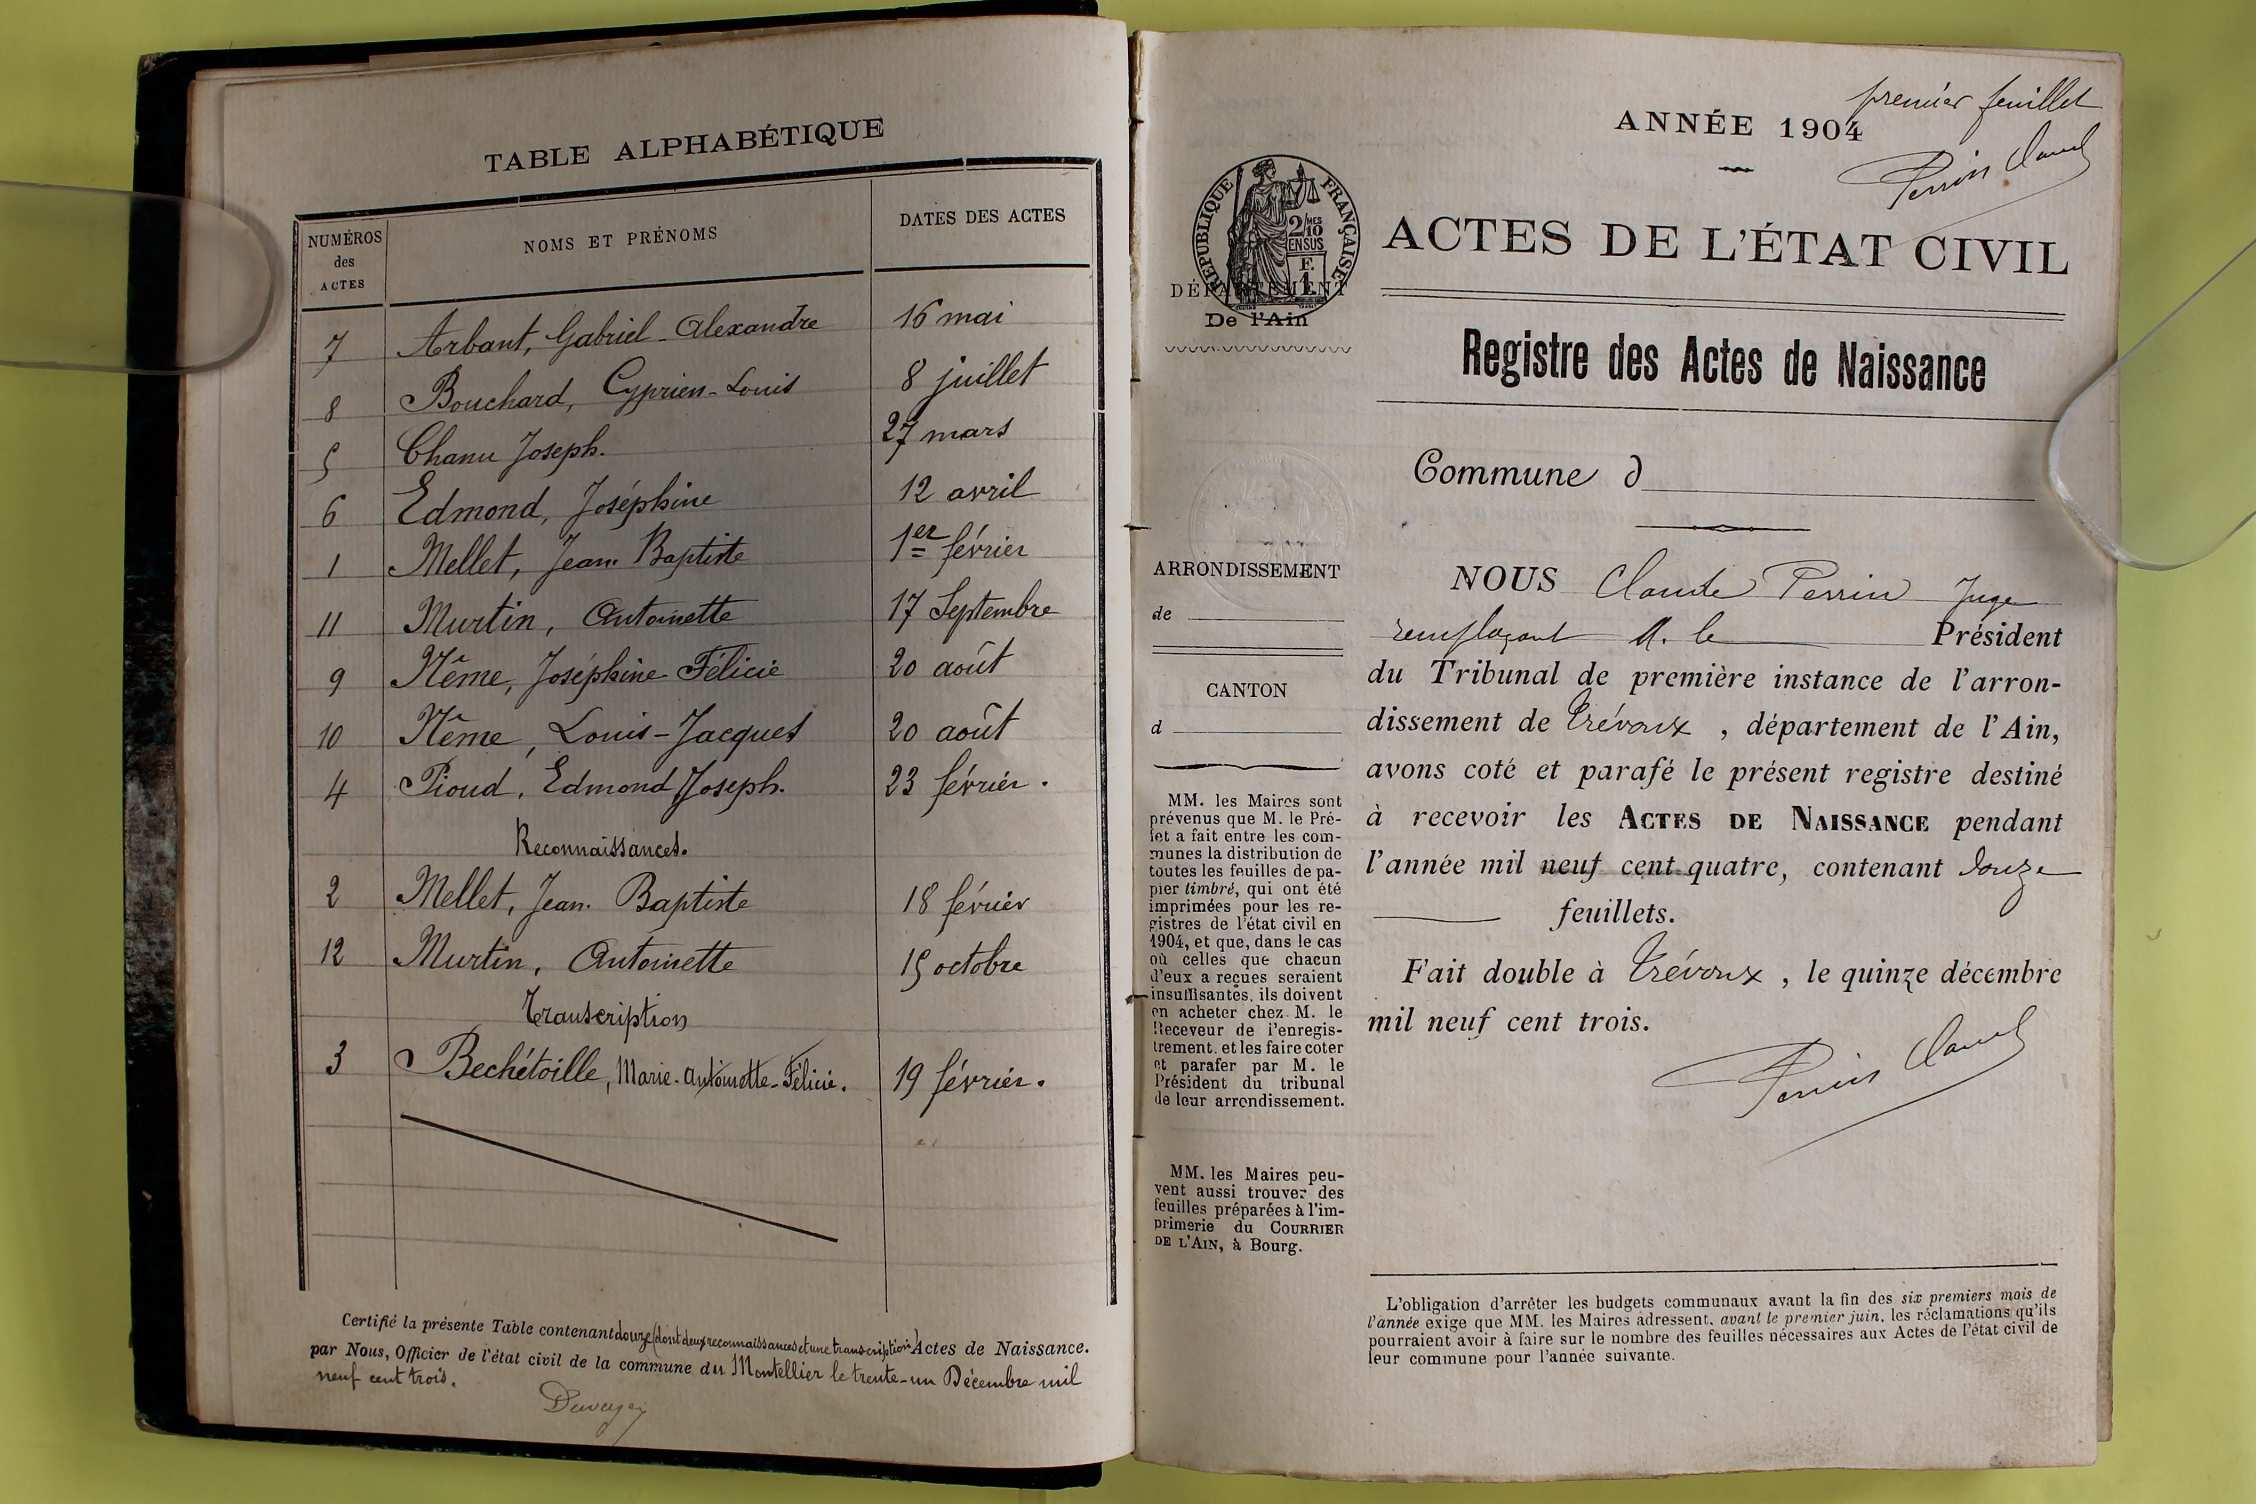 TABLE ALPHABÉTIQUE
NUMÉROS des ACTES
NOMS ET PRÉNOMS
DATES DES ACTES
7 Arbant, Gabriel-Alexandre 16 mai
8 Bouchard, Cyprien-Louis 8 juillet
5 Chanu Joseph. 27 mars
6 Edmond, Joséphine 12 avril
1 Mellet, Jean Baptiste 1er février
11 Murtin, Antoinette 17 Septembre
9 Nême, Joséphine Félicie 20 août
10 Nême, Louis-Jacques 20 août
4 Pioud, Edmond Joseph. 23 février.
Reconnaissances.
2 Mellet, Jean. Baptiste 18 février
12 Murtin, Antoinette 15 octobre
Transcription
3 Bechétoille, Marie-Antoinette-Félicie. 19 février.
Certifié la présente Table contenant douze (dont deux reconnaissances et une transcription) Actes de Naissance.
par Nous, Officier de l'état civil de la commune du Montellier le trente-un Décembre mil
neuf cent trois.
premier feuillet
ANNÉE 1904
Perrin Claud
RÉPUBLIQUE FRANÇAISE
2/10 MES
EN SUS
F.
1
ACTES DE L'ÉTAT CIVIL
DÉPARTEMENT
De l'Ain
Registre des Actes de Naissance
Commune d
ARRONDISSEMENT
de
CANTON
d
MM. les Maires sont
prévenus que M. le Pré-
fet a fait entre les com-
munes la distribution de
toutes les feuilles de pa-
pier timbré, qui ont été
imprimées pour les re-
gistres de l'état civil en
1904, et que, dans le cas
où celles que chacun
d'eux a reçues seraient
insuffisantes, ils doivent
en acheter chez M. le
Receveur de l'enregis-
trement, et les faire coter
et parafer par M. le
Président du tribunal
de leur arrondissement.
MM. les Maires peu-
vent aussi trouver des
feuilles préparées à l'im-
primerie du COURRIER
DE L'AIN, à Bourg.
NOUS Claude Perrin Juge
remplaçant M. le Président
du Tribunal de première instance de l'arron-
dissement de Trévoux, département de l'Ain,
avons coté et parafé le présent registre destiné
à recevoir les ACTES DE NAISSANCE pendant
l'année mil neuf cent quatre, contenant douze
feuillets.
Fait double à Trévoux, le quinze décembre
mil neuf cent trois.
Perrin Claud
L'obligation d'arrêter les budgets communaux avant la fin des six premiers mois de
l'année exige que MM. les Maires adressent, avant le premier juin, les réclamations qu'ils
pourraient avoir à faire sur le nombre des feuilles nécessaires aux Actes de l'état civil de
leur commune pour l'année suivante.